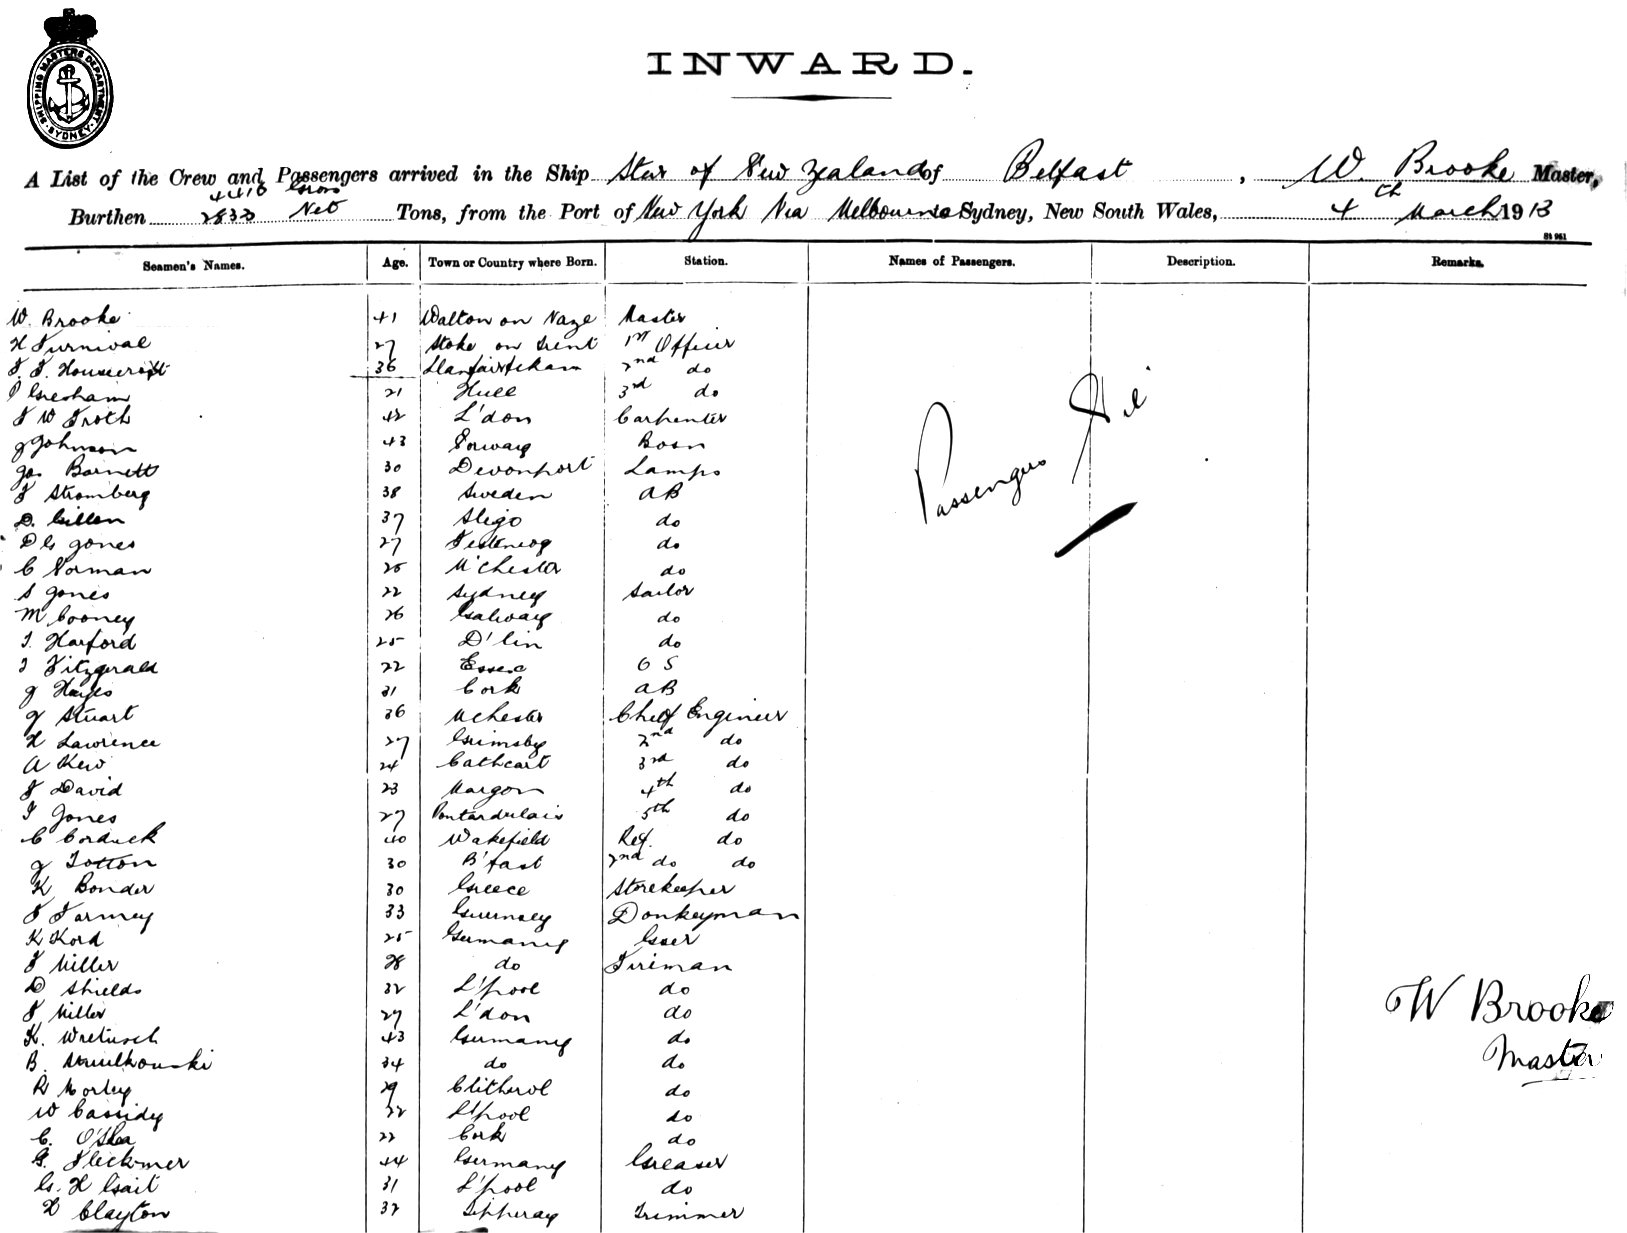 SHIPPING MASTERS DEPARTMENT SYDNEY
INWARD.
A List of the Crew and Passengers arrived in the Ship Star of New Zealand of Belfast, W. Brooke Master,
4410 Gross
Burthen 2833 Net Tons, from the Port of New York Via Melbourne Sydney, New South Wales, 4th March 1913
St 961
Seamen's Names. Age. Town or Country where Born. Station. Names of Passengers. Description. Remarks.
W. Brooke 41 Walton on Naze Master
H Furnival 27 Stoke on Trent 1st Officer
36 2nd do
Gresham 21 Hull 3rd do
J W Troth 42 L'don Carpenter
J Johnson 43 Norway Bosn
Jas. Barnett 30 Devonport Lamps
J Stromberg 38 Sweden AB
D. Gillen 37 Sligo do
D G Jones 27 do
C Norman 25 M'chester do
S Jones 22 Sydney Sailor
M Cooney 26 Galway do
T. Harford 25 D'lin do
T Fitzgerald 22 Essex O S
J Hayes 31 Cork AB
J Stuart 36 Mchester Chief Engineer
H Lawrence 27 Grimsby 2nd do
A Kew 24 Cathcart 3rd do
J David 23 Margam 4th do
T Jones 27 Pontardulais 5th do
C Corduck 40 Wakefield Ref. do
J Totton 30 B'fast 2nd do do
K Bonder 30 Greece Storekeeper
J Tormey 33 Guernsey Donkeyman
K Kord 25 Germany Gser
J Miller 28 do Fireman
D Shields 32 L'pool do
J Miller 27 L'don do
K. 43 Germany do
B. 34 do do
R Morley 29 Clitheroe do
W Cassidy 32 L'pool do
C. O'Shea 22 Cork do
G. Fleckmer 44 Germany Greaser
G. H Gait 31 L'pool do
H Clayton 32 Tipperay Trimmer
Passengers Nil
W Brooke
Master